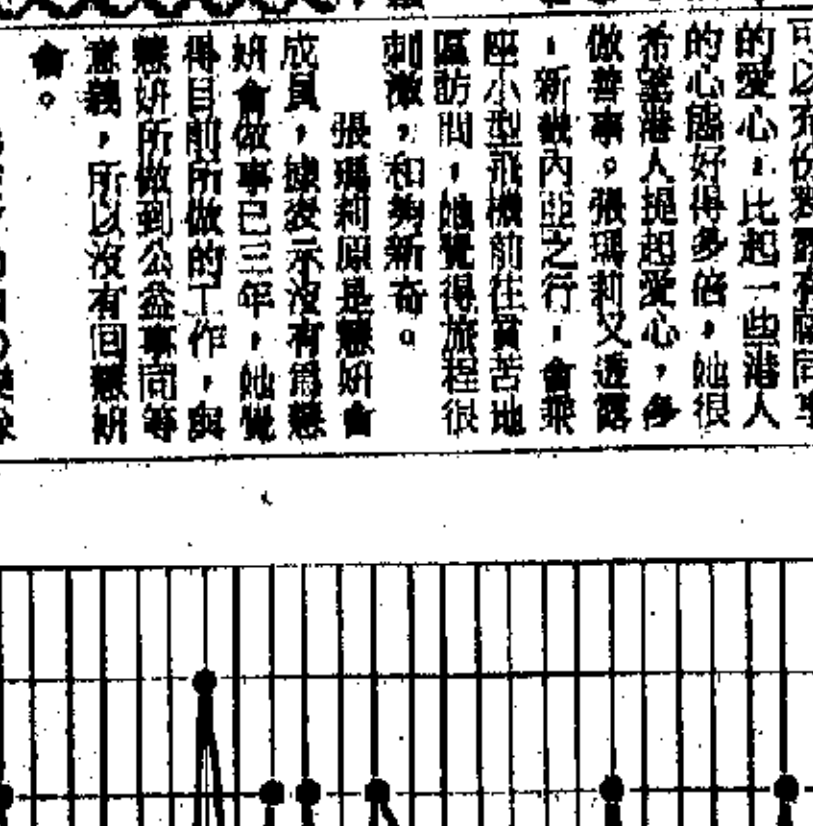 的愛心，比起一些港人
的心態好得多倍，她很
希望港人提起愛心，多
做善事。張瑪莉又透露
，新畿內亞之行，會乘
座小型飛機前往貧苦地
區訪問，她覺得旅程很
刺激，和夠新奇。
張瑪莉原是慧妍會
成員，據表示沒有爲慧
妍會做事已三年，她覺
得目前所做的工作，與
慧妍所做到公益事同等
意義，所以沒有回慧妍
會。